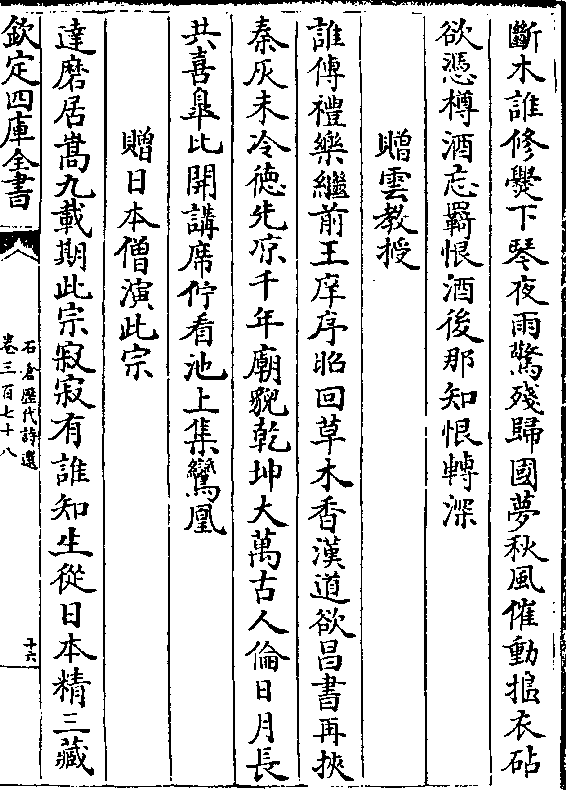 斷木誰修㸑下琴夜雨驚殘歸國夢秋風催動搗衣砧
欲憑樽酒忘羇恨酒後那知恨轉深
贈雲教授
誰傳禮樂繼前王庠序昭回草木香漢道欲昌書再挾
秦灰未冷徳先凉千年廟貌乾坤大萬古人倫日月長
共喜臯比開講席佇看池上集鸞凰
贈日本僧演此宗
達磨居嵩九載期此宗寂寂有誰知生從日本精三藏
欽定四庫全書
石倉歴代詩選
卷三百七十八
十六